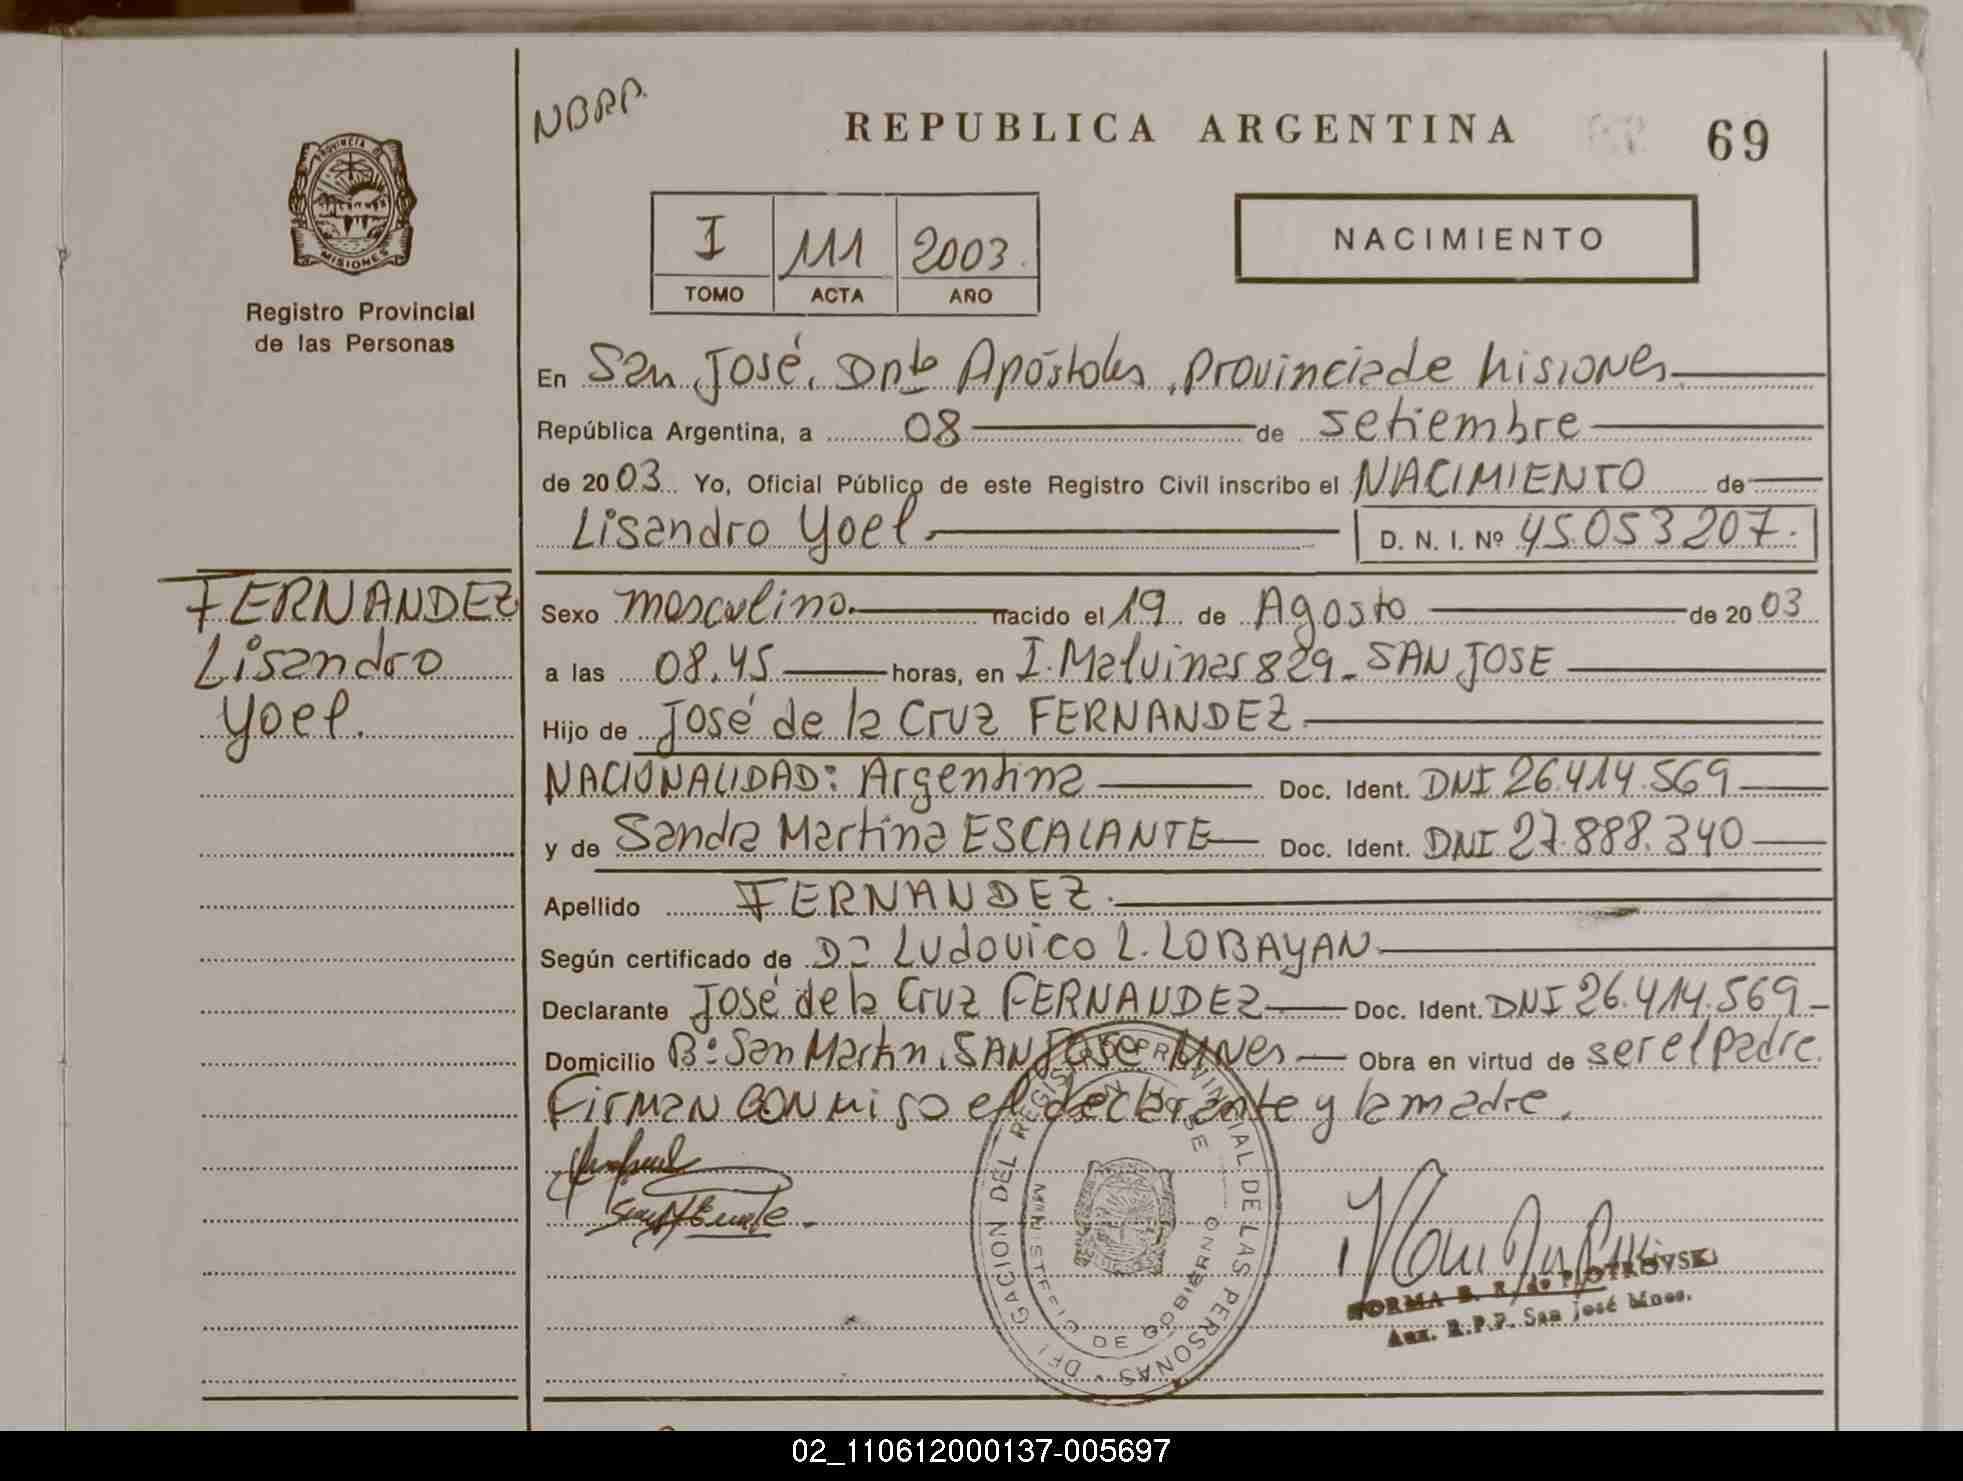 NBRP.
REPUBLICA ARGENTINA
69
PROVINCIA DE
MISIONES
Registro Provincial
de las Personas
I 111 2003.
TOMO ACTA AÑO
NACIMIENTO
En San José, Dpto Apóstoles, provincia de Misiones.
República Argentina, a 08 de setiembre
de 2003 Yo, Oficial Público de este Registro Civil inscribo el NACIMIENTO de
Lisandro Yoel D. N. I. Nº 45.053.207.
FERNANDEZ
Lisandro
Yoel.
Sexo masculino. nacido el 19 de Agosto de 2003
a las 08.45 horas, en I. Malvinas 829 - SAN JOSE
Hijo de José de la Cruz FERNANDEZ
NACIONALIDAD: Argentina Doc. Ident. DNI 26.414.569
y de Sandra Martina ESCALANTE Doc. Ident. DNI 27.888.340
Apellido FERNANDEZ
Según certificado de Dº Ludovico L. LOBAYAN
Declarante José de la Cruz FERNANDEZ Doc. Ident. DNI 26.414.569
Domicilio Bº San Martin, SAN JOSE Mnes Obra en virtud de ser el padre.
Firman conmigo el declarante y la madre.
DELEGACION DEL REGISTRO PROVINCIAL DE LAS PERSONAS
SAN JOSE
MINISTERIO DE GOBIERNO
NORMA B. R. de PIOTROVSKI
Aux. R.P.P. San José Mnes.
02_110612000137-005697